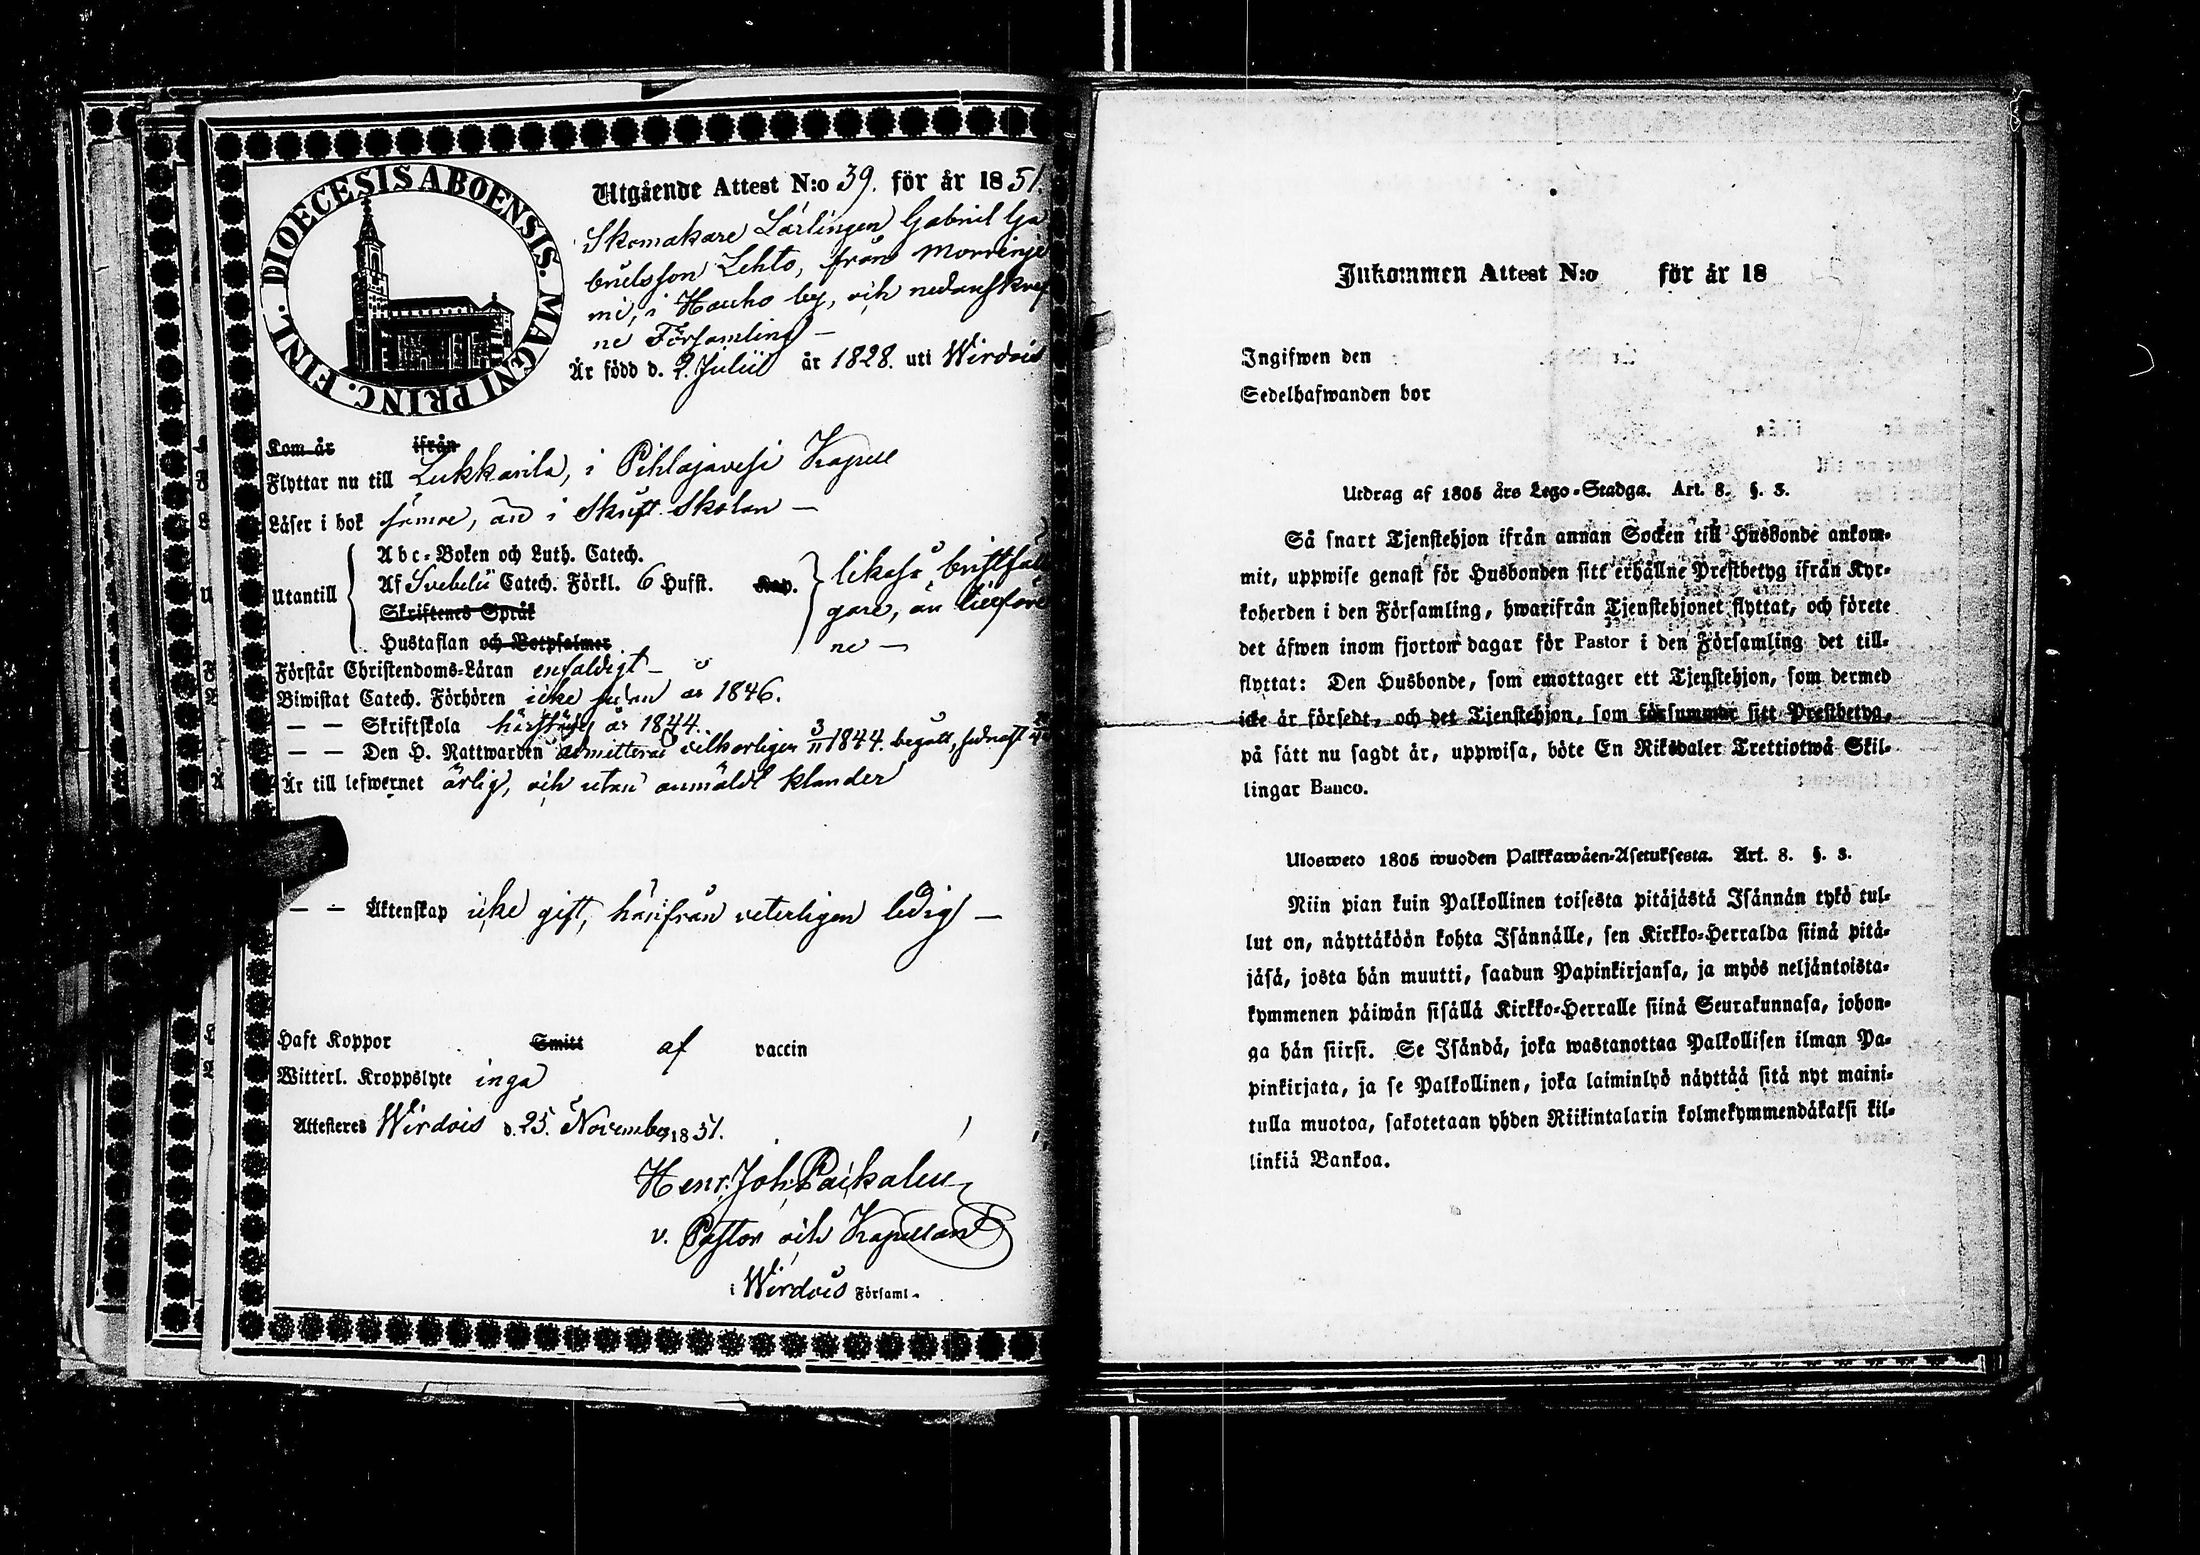 DIOECESIS ABOENSIS. MAGNI PRINC. FINL.
Utgående Attest N:o 39. för år 1851.
Skomakare Lärlingen Gabriel Ga
brielsson Lehto, från
me, i Hauho by, och nedanskref
ne Församling –
Är född d. 2. Julii år 1828. uti Wirdois
Kom år ifrån
Flyttar nu till Lukkarila, i Pihlajavesi Kapell
Läser i bok sämre, än i Skrift Skolan –
Utantill
Abc-Boken och Luth. Catech.
Af Svebelii Catech. Förkl. 6 Hufst. Kap.
Skriftenes Språk
Hustaflan och Botpsalmer
likaså bristfäl
gare, än tillföre
ne –
Förstår Christendoms-Läran enfaldigt –
Biwistat Catech. Förhören icke sedan år 1846.
– – Skriftskola härstädes år 1844.
– – Den H. Nattwarden admitterad vilkorligen 3/11 1844. begått, sednast
Är till lefwernet ärlig, och utan anmäldt klander
– – Äktenskap icke gift, härifrån veterligen ledig –
Haft Koppor Smitt af vaccin
Witterl. Kroppslyte inga
Attesteres Wirdois d. 25. November 1851.
Henr. Joh. Paikalen
v. Pastor och Kapellan
i Wirdois Församl.
Inkommen Attest N:o för år 18
Ingifwen den
Sedelhafwanden bor
Utdrag af 1805 års Lego-Stadga. Art. 8. §. 3.
Så snart Tjenstehjon ifrån annan Socken till Husbonde ankom-
mit, uppwise genast för Husbonden sitt erhållne Prestbetyg ifrån Kyr-
koherden i den Församling, hwarifrån Tjenstehjonet flyttat, och förete
det äfwen inom fjorton dagar för Pastor i den Församling det till-
flyttat: Den Husbonde, som emottager ett Tjenstehjon, som dermed
icke är försedt, och det Tjenstehjon, som försummar sitt Prestbetyg,
på sätt nu sagdt är, uppwisa, böte En Riksdaler Trettiotwå Skil-
lingar Banco.
Ulosweto 1805 wuoden Palkkawäen-Asetuksesta. Art. 8. §. 3.
Niin pian kuin Palkollinen toisesta pitäjästä Isännän tykö tul-
lut on, näyttäköön kohta Isännälle, sen Kirkko-Herralda siinä pitä-
jäsä, josta hän muutti, saadun Papinkirjansa, ja myös neljäntoista-
kymmenen päiwän sisällä Kirkko-Herralle siinä Seurakunnasa, johon-
ga hän siirsi. Se Isändä, joka wastanottaa Palkollisen ilman Pa-
pinkirjata, ja se Palkollinen, joka laiminlyö näyttää sitä nyt maini-
tulla muotoa, sakotetaan yhden Riikintalarin kolmekymmendäkaksi kil-
linkiä Bankoa.